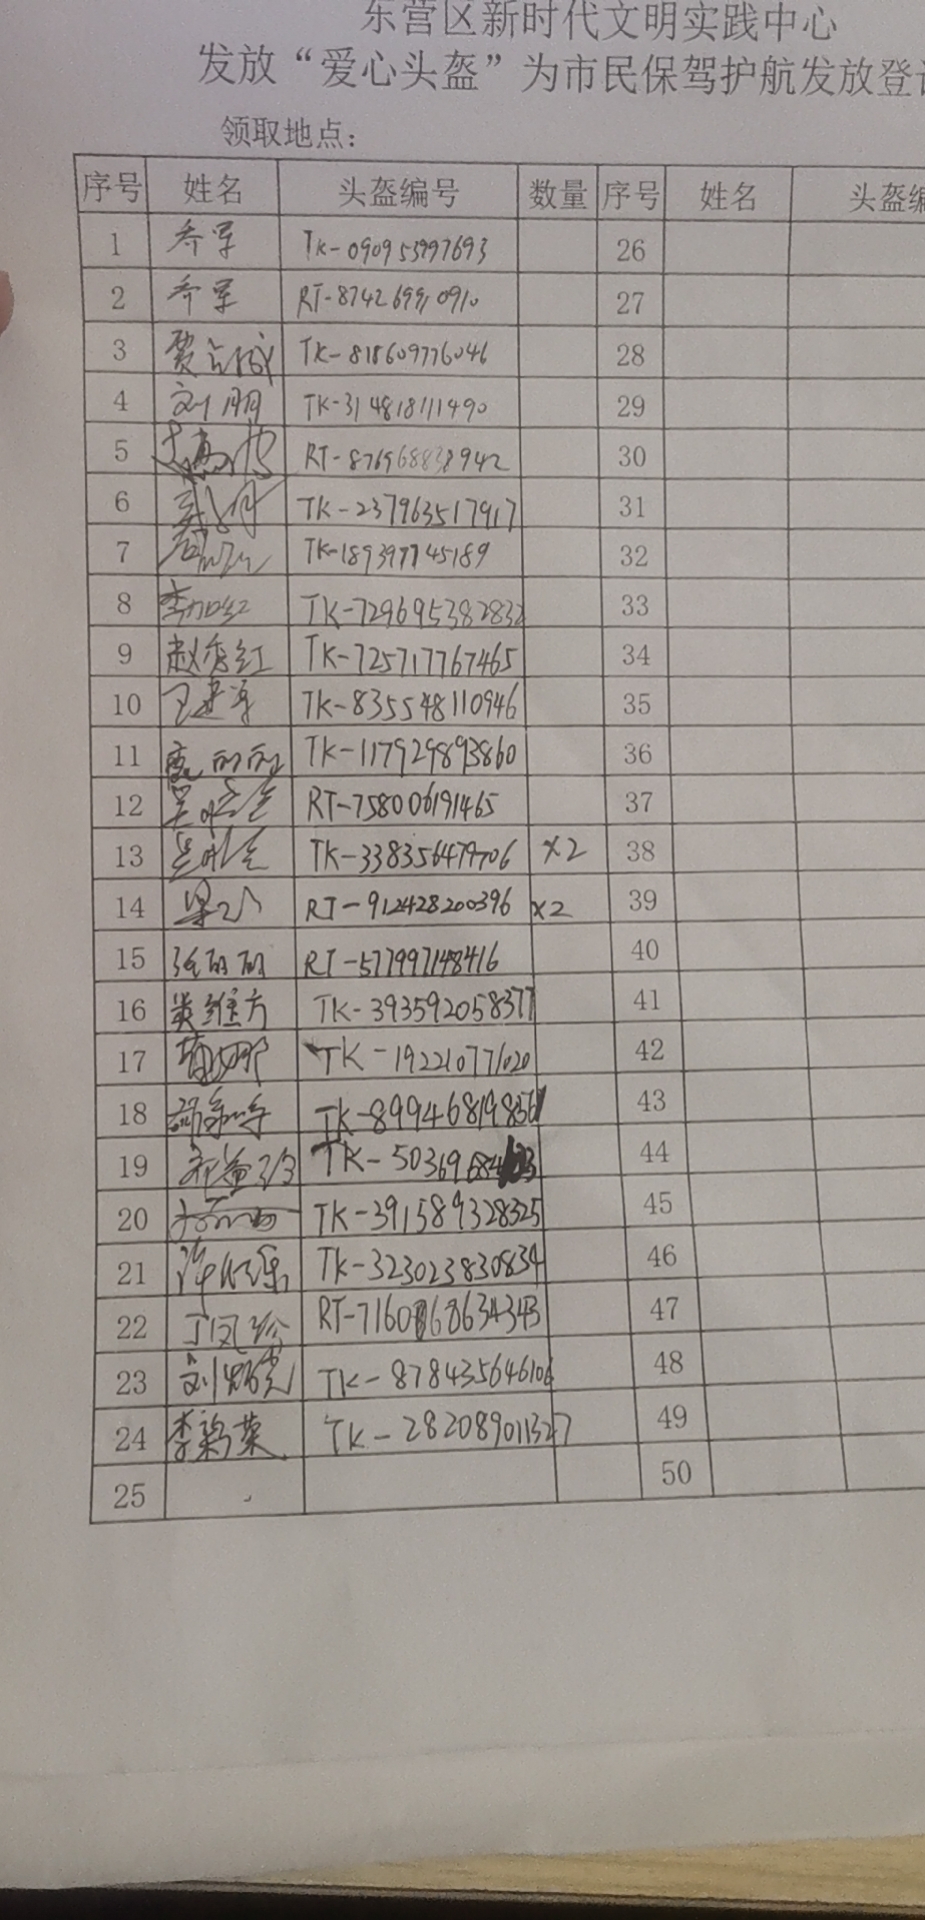 东营区新时代文明实践中心
发放“爱心头盔”为市民保驾护航发放登
领取地点：
序号 姓名 头盔编号 数量 序号 姓名 头盔编
1 乔军 TK-090953997693 26
2 乔军 RT-874269910910 27
3 TK-818609776046 28
4 刘朋 TK-314818111490 29
5 30
6 TK-237963517917 31
7 TK-189397745189 32
8 李加红 TK-729695382832 33
9 赵秀红 TK-725717767465 34
10 王建军 TK-835548110946 35
11 TK-117929893860 36
12 RT-758006191465 37
13 TK-338356479706 ×2 38
14 RT-912428200396 ×2 39
15 张丽丽 RT-577997148416 40
16 黄维方 TK-393592058377 41
17 TK-192210771020 42
18 43
19 44
20 TK-391589328325 45
21 TK-323023830834 46
22 丁凤珍 47
23 TK-878435646106 48
24 TK-282089011327 49
25 50